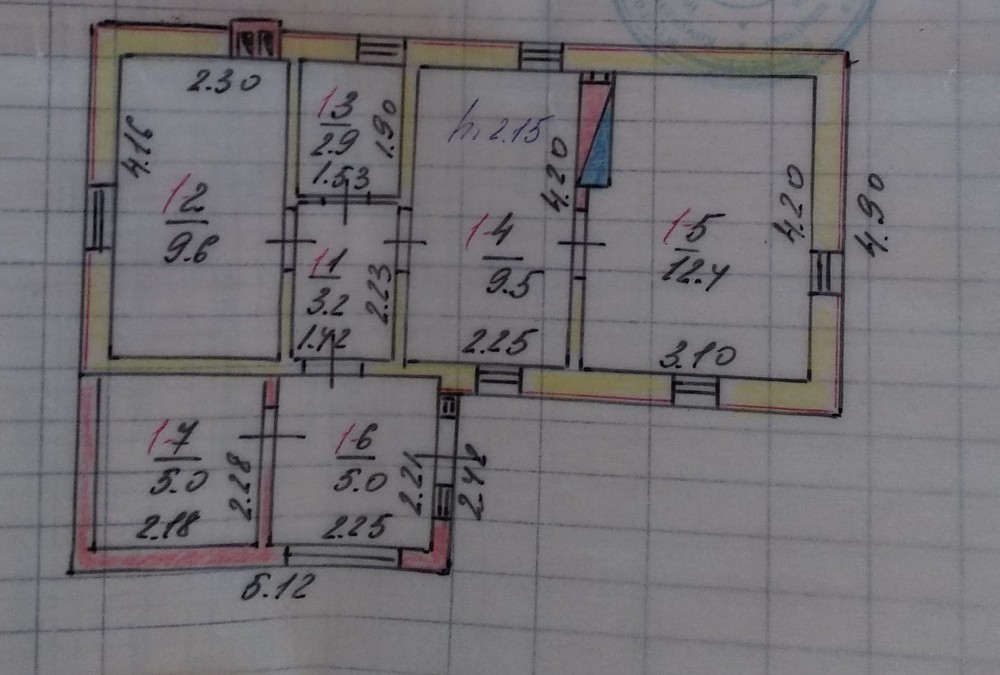 2.30
4.16
1-2
9.6
1-3
2.9
1.90
1.53
h. 2.15
4.20
1-4
9.5
2.25
1-5
12.4
4.20
4.90
3.10
1-1
3.2
2.23
1.42
1-7
5.0
2.28
2.18
1-6
5.0
2.21
2.42
2.25
5.12